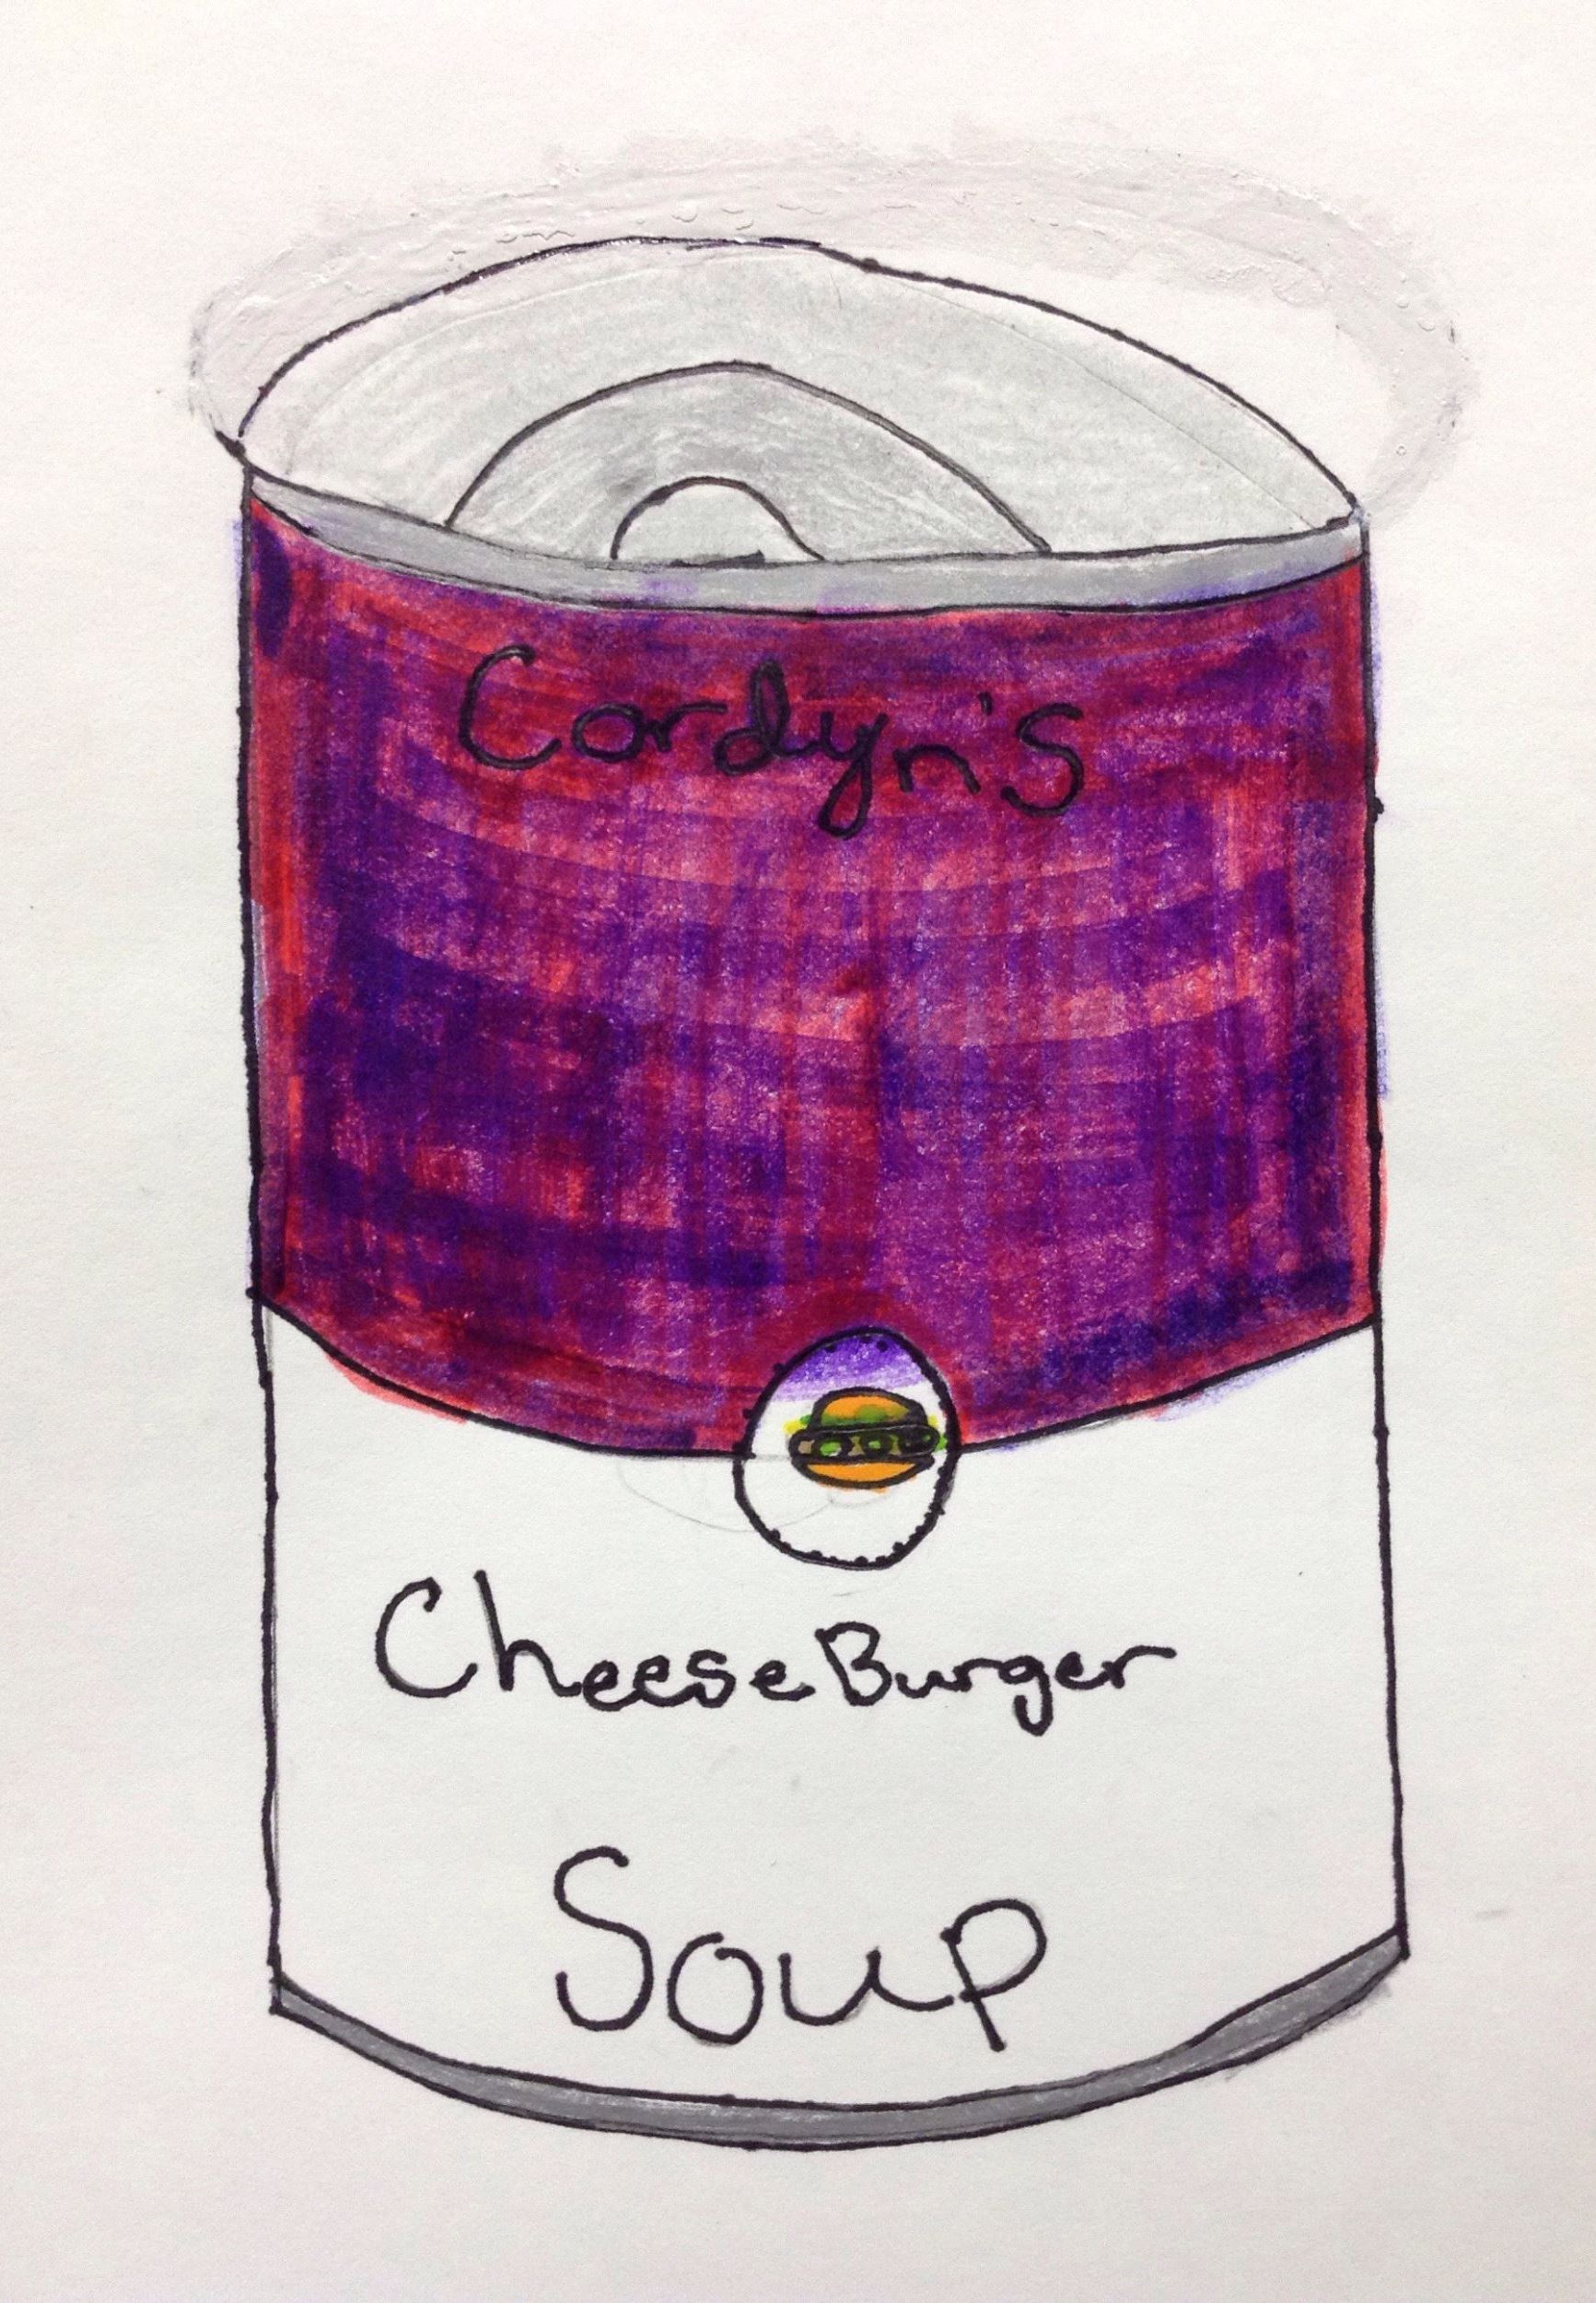 Cordyn's
CheeseBurger
Soup